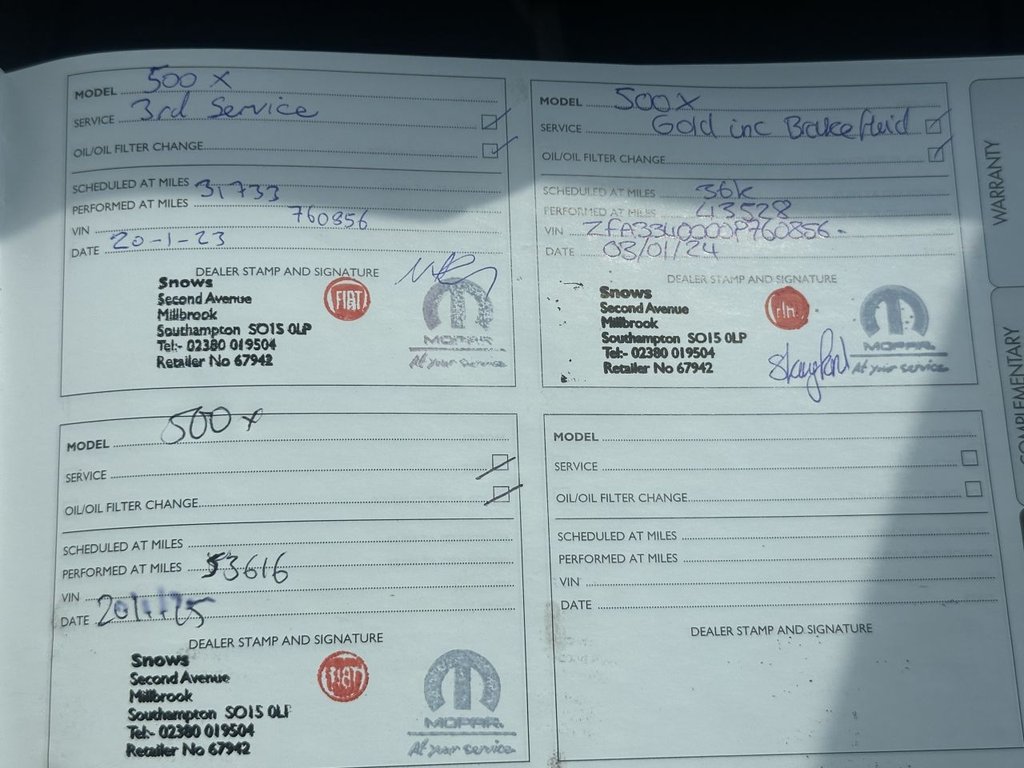 MODEL 500 X
SERVICE 3rd Service
OIL/OIL FILTER CHANGE
SCHEDULED AT MILES 31,733
PERFORMED AT MILES
VIN 760856
DATE 20-1-23
DEALER STAMP AND SIGNATURE
Snows
Second Avenue
Millbrook
Southampton SO15 0LP
Tel:- 02380 019504
Retailer No 67942
FIAT
MOPAR
At your service
MODEL 500X
SERVICE Gold inc Brake fluid
OIL/OIL FILTER CHANGE
SCHEDULED AT MILES 36k
PERFORMED AT MILES 43528
VIN ZFA3340000P760856
DATE 03/01/24
DEALER STAMP AND SIGNATURE
Snows
Second Avenue
Millbrook
Southampton SO15 0LP
Tel:- 02380 019504
Retailer No 67942
MOPAR
At your service
MODEL 500 X
SERVICE
OIL/OIL FILTER CHANGE
SCHEDULED AT MILES
PERFORMED AT MILES 53616
VIN
DATE
DEALER STAMP AND SIGNATURE
Snows
Second Avenue
Millbrook
Southampton SO15 0LP
Tel:- 02380 019504
Retailer No 67942
FIAT
MOPAR
At your service
MODEL
SERVICE
OIL/OIL FILTER CHANGE
SCHEDULED AT MILES
PERFORMED AT MILES
VIN
DATE
DEALER STAMP AND SIGNATURE
WARRANTY
COMPLEMENTARY